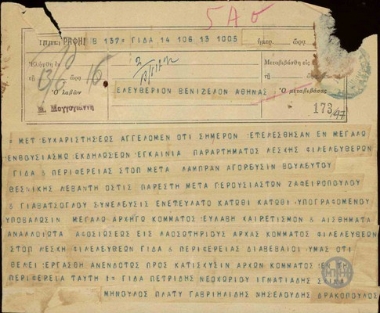 5A σ
ΓΙΔΑ 14 108 13 1005
13/6 16
Ο λαβών
Ο μεταβιβάσας
ΕΛΕΥΘΕΡΙΟΝ ΒΕΝΙΖΕΛΟΝ ΑΘΗΝΑΣ
173
ΜΕΤ ΕΥΧΑΡΙΣΤΗΣΕΩΣ ΑΓΓΕΛΟΜΕΝ ΟΤΙ ΣΗΜΕΡΟΝ ΕΤΕΡΕΣΘΗΣΑΝ ΕΝ ΜΕΓΑΛΟ
ΕΝΘΟΥΣΙΑΣΜΟ ΕΚΔΗΛΩΣΕΩΝ ΕΓΚΑΙΝΙΑ ΠΑΡΑΡΤΗΜΑΤΟΣ ΛΕΣΧΗΣ ΦΙΛΕΛΕΥΘΕΡΩΝ
ΓΙΔΑ Δ ΠΕΡΙΦΕΡΕΙΑΣ ΣΤΟΠ ΜΕΤΑ ΛΑΜΠΡΑΝ ΑΓΟΡΕΥΣΙΝ ΒΟΥΛΕΥΤΟΥ
ΘΕΣΝΙΚΗΣ ΛΕΒΑΝΤΗ ΟΣΤΙΣ ΠΑΡΕΣΤΗ ΜΕΤΑ ΓΕΡΟΥΣΙΑΣΤΩΝ ΖΑΦΕΙΡΟΠΟΥΛΟΥ
Δ ΓΙΑΒΑΤΙΟΓΛΟΥ ΣΥΝΕΛΕΥΣΙΣ ΕΝΕΤΕΙΛΑΤΟ ΚΑΤΩΘΙ ΚΑΤΩΘΙ ΥΠΟΓΡΑΦΟΜΕΝΟΥ
ΥΠΟΒΑΛΩΣΙΝ ΜΕΓΑΛΟ ΑΡΧΗΓΟ ΚΟΜΜΑΤΟΣ ΕΥΛΑΒΗ ΧΑΙΡΕΤΙΣΜΟΝ Δ ΑΙΣΘΗΜΑΤΑ
ΑΝΑΛΛΟΙΩΤΑ ΑΦΟΣΙΩΣΕΩΣ ΕΙΣ ΛΑΟΣΩΤΗΡΙΟΥΣ ΑΡΧΑΣ ΚΟΜΜΑΤΟΣ ΦΙΛΕΛΕΥΘΕΡΩΝ
ΣΤΟΠ ΛΕΣΧΗ ΦΙΛΕΛΕΥΘΕΡΩΝ ΓΙΔΑ Δ ΠΕΡΙΦΕΡΕΙΑΣ ΔΙΑΒΕΒΑΙΟΙ ΥΜΑΣ ΟΤΙ
ΘΕΛΕΙ ΕΡΓΑΣΘΗ ΑΝΕΝΔΟΤΩΣ ΠΡΟΣ ΚΑΤΙΣΧΥΣΙΝ ΑΡΧΩΝ ΚΟΜΜΑΤΟΣ ΕΝ
ΠΕΡΙΦΕΡΕΙΑ ΤΑΥΤΗ ΓΙΔΑ ΠΕΤΡΙΔΗΣ ΝΕΟΧΩΡΙΟΥ ΙΓΝΑΤΙΑΔΗΣ
ΜΗΝΟΥΛΟΣ ΠΛΑΤΥ ΓΑΒΡΙΗΛΙΔΗΣ ΔΡΑΚΟΠΟΥΛΟΣ